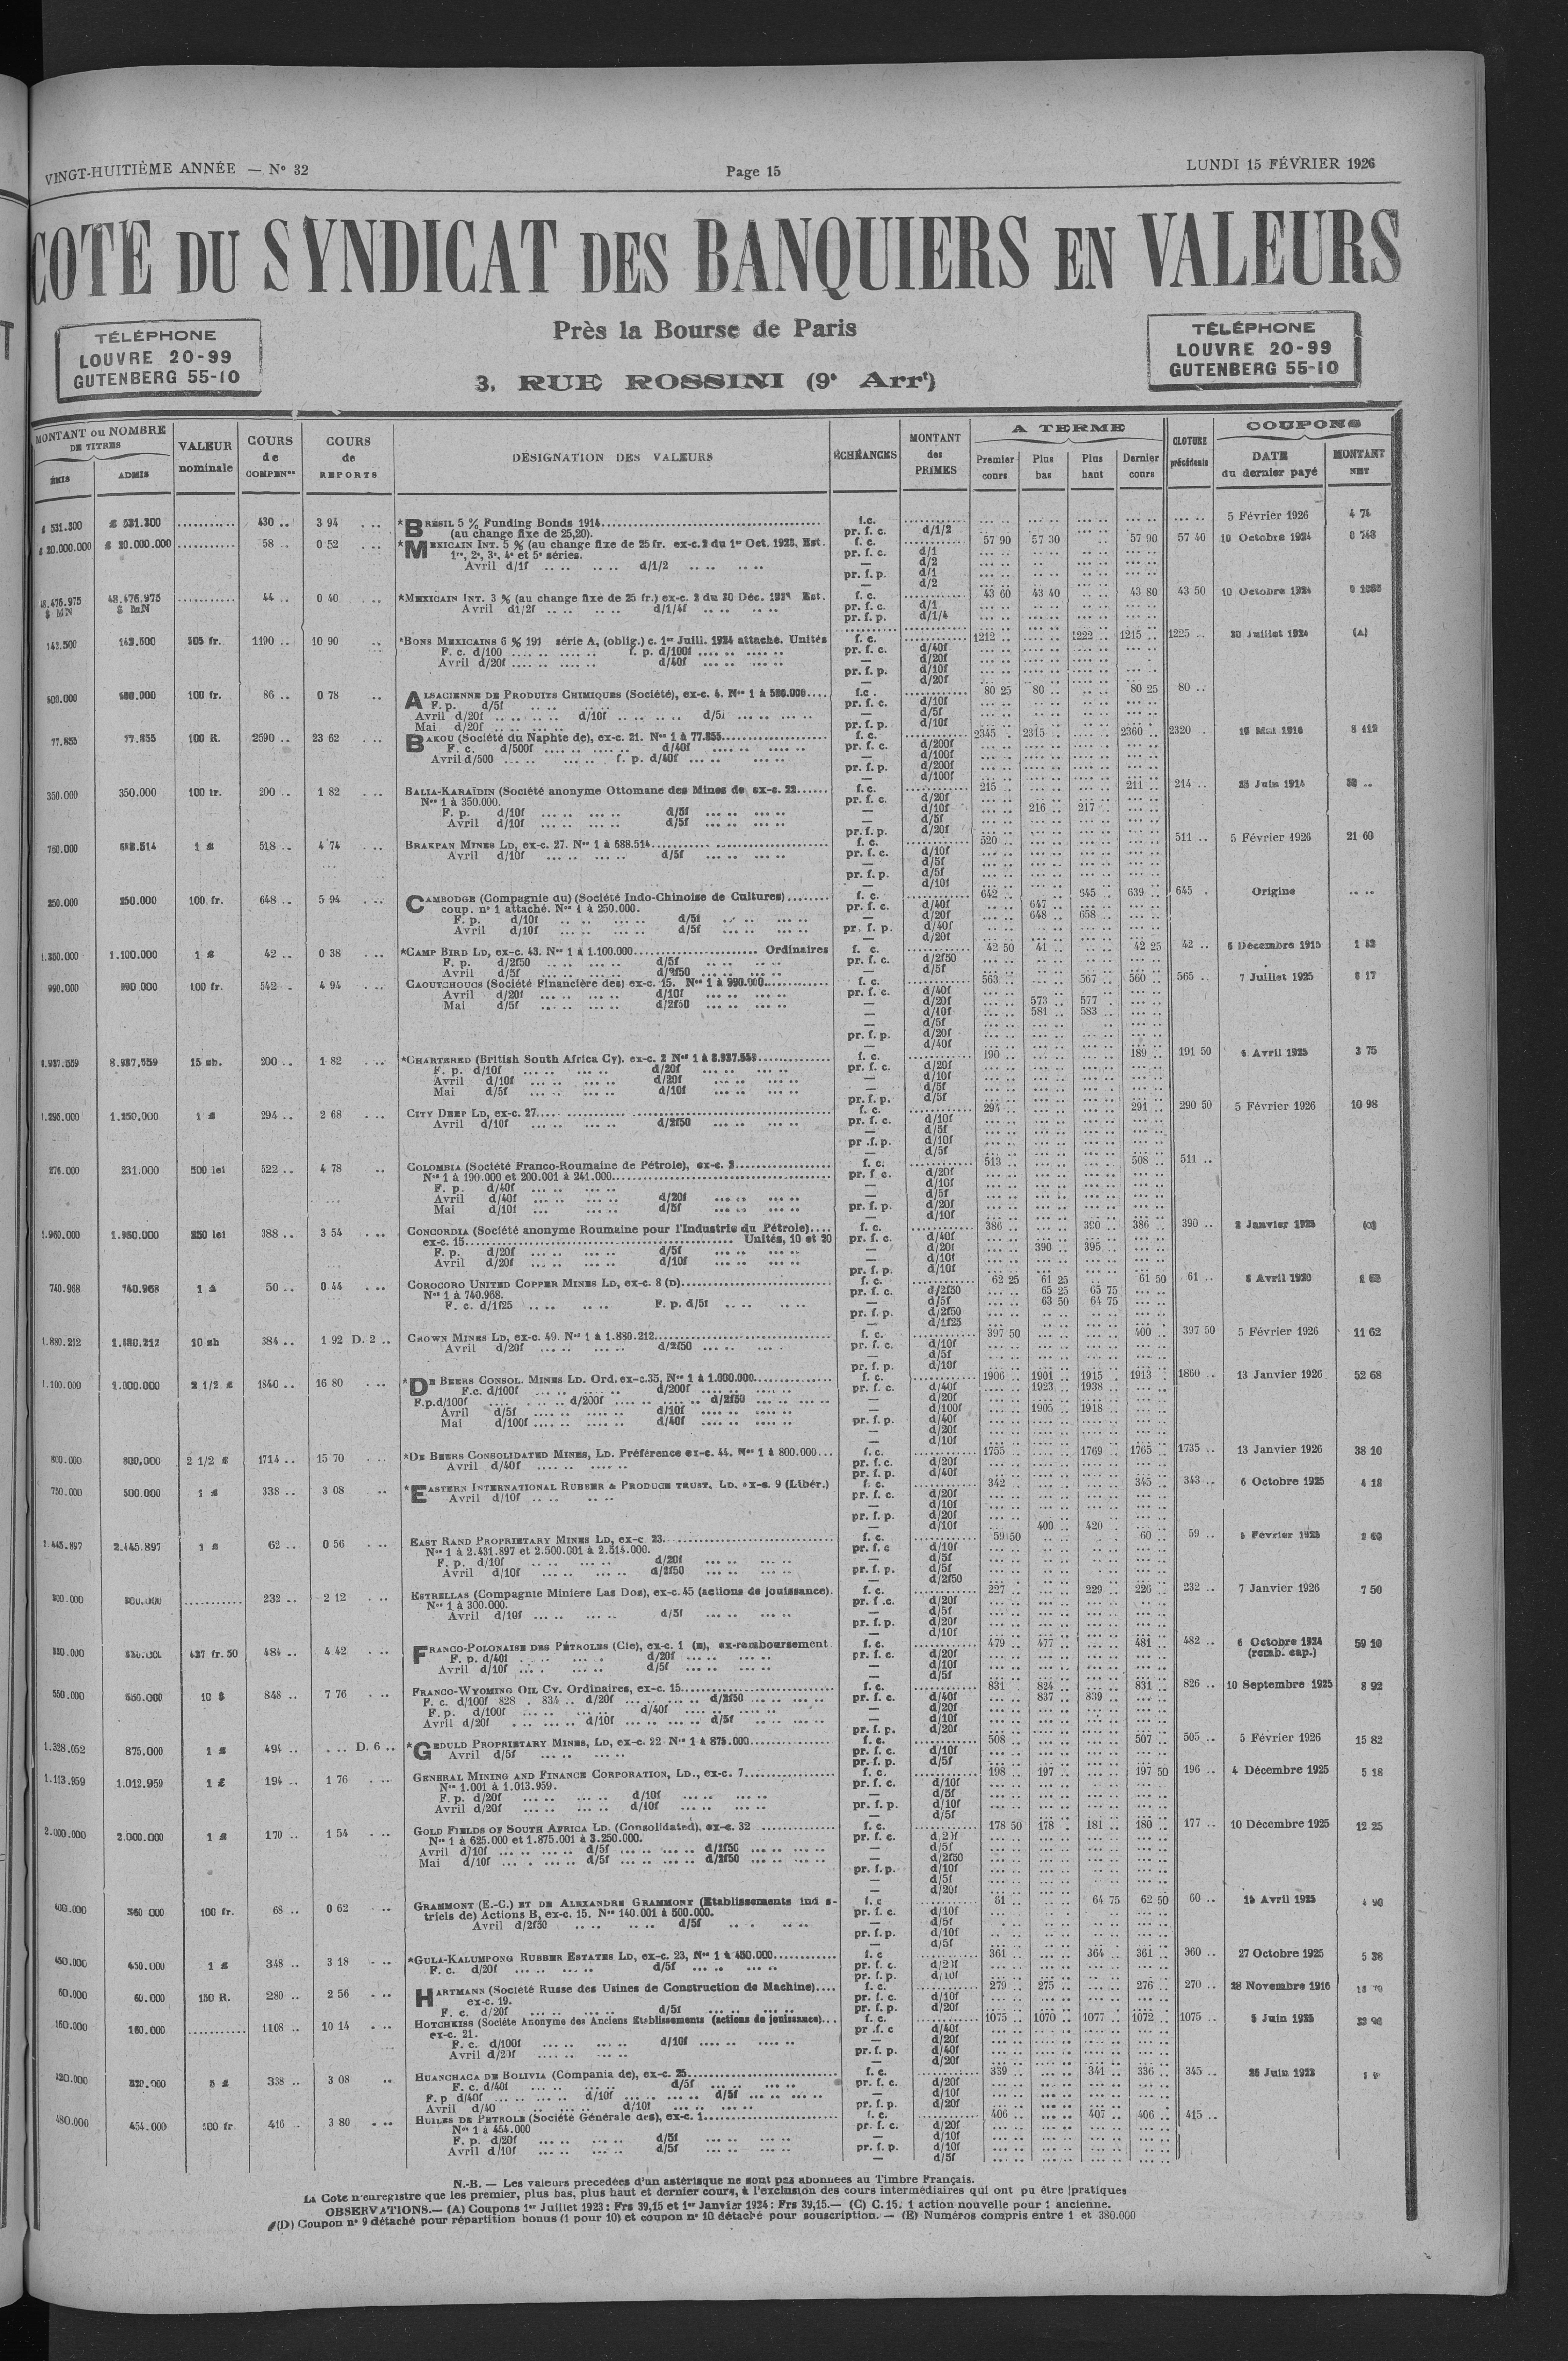 VINGT-HUITIÈME ANNÉE — Nº 32
Page 15
LUNDI 15 FÉVRIER 1926
COTE DU SYNDICAT DES BANQUIERS EN VALEURS
Près la Bourse de Paris
3, RUE ROSSINI (9ᵉ Arrᵗ)
TÉLÉPHONE
LOUVRE 20-99
GUTENBERG 55-10
TÉLÉPHONE
LOUVRE 20-99
GUTENBERG 55-10
MONTANT ou NOMBRE DE TITRES
ÉMIS ADMIS
VALEUR nominale
COURS de COMPENˢᵒⁿ
COURS de REPORTS
DÉSIGNATION DES VALEURS
ÉCHÉANCES
MONTANT des PRIMES
A TERME
Premier cours Plus bas Plus haut Dernier cours
CLOTURE précédente
COUPONS
DATE du dernier payé
MONTANT NET
430 .. 3 94 *BRÉSIL 5 % Funding Bonds 1914 f.c. 5 Février 1926 4 74
(au change fixe de 25,20). pr. f. c. d/1/2
58 .. 0 52 *MEXICAIN INT. 5 % (au change fixe de 25 fr. ex-c. 2 du 1ᵉʳ Oct. 1923, Est. f. c. 57 90 57 30 57 90 57 40 10 Octobre 1924
1ʳᵉ, 2ᵉ, 3ᵉ, 4ᵉ et 5ᵉ séries.
Avril d/1f d/1/2
44 .. 0 40 *MEXICAIN INT. 3 % (au change fixe de 25 fr.) ex-c. 2 du 30 Déc. Est. f. c. 43 60 43 40 43 80 43 50 10 Octobre 1924
Avril d1/2f d/1/4f
142.500 142.500 505 fr. 1190 .. 10 90 *BONS MEXICAINS 6 % 191 série A, (oblig.) c. 1ᵉʳ Juill. 1924 attaché. Unités f. c. 1212 1222 .. 1215 .. 1225 .. 30 Juillet 1924 (A)
F. c. d/100 f. p. d/100f
Avril d/20f d/40f
500.000 500.000 100 fr. 86 .. 0 78 ALSACIENNE DE PRODUITS CHIMIQUES (Société), ex-c. 4. f.c. 80 25 80 .. 80 25 80 ..
F. p. d/5f
Avril d/20f d/10f d/5f
Mai d/20f
77.855 77.855 100 R. 2590 .. 23 62 BAKOU (Société du Naphte de), ex-c. 21. Nᵒˢ 1 à 77.855 f. c. 2345 .. 2315 .. 2360 .. 2320 .. 15 Mai 1916
F. c. d/500f d/40f
Avril d/500 f. p. d/40f
350.000 350.000 100 fr. 200 .. 1 82 BALIA-KARAÏDIN (Société anonyme Ottomane des Mines de) ex-c. 22 f. c. 215 .. 211 .. 214 .. 25 Juin 1914
Nᵒˢ 1 à 350.000.
F. p. d/10f d/5f 216 .. 217 ..
Avril d/10f d/5f
750.000 688.514 1 £ 518 .. 4 74 BRAKPAN MINES LD, ex-c. 27. Nᵒˢ 1 à 688.514 f. c. 520 .. 511 .. 5 Février 1926 21 60
Avril d/10f d/5f
250.000 250.000 100 fr. 648 .. 5 94 CAMBODGE (Compagnie du) (Société Indo-Chinoise de Cultures) f. c. 642 .. 645 .. 639 .. 645 . Origine
coup. nº 1 attaché. Nᵒˢ 1 à 250.000. pr. f. c. d/40f 647 ..
F. p. d/10f d/5f d/20f 648 .. 658 ..
Avril d/10f d/5f
1.100.000 1 £ 42 .. 0 38 *CAMP BIRD LD, ex-c. 43. Nᵒˢ 1 à 1.100.000 Ordinaires f. c. 42 50 41 .. 42 25 42 .. 6 Décembre 1915
F. p. d/2f50 d/5f
Avril d/5f d/2f50
990.000 990 000 100 fr. 542 .. 4 94 CAOUTCHOUCS (Société Financière des) ex-c. 15. Nᵒˢ 1 à 990.000 f. c. 563 .. 567 .. 560 .. 565 .. 7 Juillet 1925 6 17
Avril d/20f d/10f d/20f 573 .. 577 ..
Mai d/5f d/2f50 d/10f 581 .. 583 ..
8.937.559 8.937.559 15 sh. 200 .. 1 82 *CHARTERED (British South Africa Cy). ex-c. 2 Nᵒˢ 1 à 8.937.559 f. c. 190 .. 189 .. 191 50 6 Avril 1925 3 75
F. p. d/10f d/20f
Avril d/10f d/20f
Mai d/5f d/10f
1.295.000 1.250.000 1 £ 294 .. 2 68 CITY DEEP LD, ex-c. 27 f. c. 294 .. 291 .. 290 50 5 Février 1926 10 98
Avril d/10f d/2f50
276.000 231.000 500 lei 522 .. 4 78 COLOMBIA (Société Franco-Roumaine de Pétrole), ex-c. 3 f. c. 513 .. 508 .. 511 ..
Nᵒˢ 1 à 190.000 et 200.001 à 241.000
F. p. d/40f
Avril d/40f d/20f
Mai d/10f d/5f
1.960.000 1.960.000 250 lei 388 .. 3 54 CONCORDIA (Société anonyme Roumaine pour l'Industrie du Pétrole) f. c. 386 .. 390 .. 386 .. 390 .. 2 Janvier 1925 (C)
ex-c. 15 Unités, 10 et 20
F. p. d/20f d/5f 390 .. 395 ..
Avril d/20f d/10f
740.968 740.968 1 £ 50 .. 0 44 COROCORO UNITED COPPER MINES LD, ex-c. 8 (D) f. c. 62 25 61 25 61 50 61 .. Avril 1920
Nᵒˢ 1 à 740.968. pr. f. c. d/2f50 65 25 65 75
F. c. d/1f25 F. p. d/5f d/5f 63 50 64 75
1.880.212 1.880.212 10 sh 384 .. 1 92 D. 2 .. CROWN MINES LD, ex-c. 49. Nᵒˢ 1 à 1.880.212 f. c. 397 50 400 .. 397 50 5 Février 1926 11 62
Avril d/20f d/2f50
1.100.000 1.000.000 2 1/2 £ 1840 .. 16 80 *DE BEERS CONSOL. MINES LD. Ord. ex-c.35, Nᵒˢ 1 à 1.000.000 f. c. 1906 .. 1901 .. 1915 .. 1913 .. 1860 .. 13 Janvier 1926 52 68
F.c. d/100f d/200f pr. f. c. d/40f 1923 .. 1938 ..
F.p.d/100f d/200f d/2f50
Avril d/5f d/10f d/100f 1905 .. 1918 ..
Mai d/100f d/40f
800.000 800,000 2 1/2 £ 1714 .. 15 70 *DE BEERS CONSOLIDATED MINES, LD. Préférence ex-c. 44. Nᵒˢ 1 à 800.000 f. c. 1755 1769 .. 1765 .. 1735 .. 13 Janvier 1926 38 10
Avril d/40f
750.000 500.000 1 £ 338 .. 3 08 *EASTERN INTERNATIONAL RUBBER & PRODUCE TRUST, LD. ex-c. 9 (Libér.) f. c. 342 .. 345 .. 343 .. 6 Octobre 1925 4 18
Avril d/10f
d/10f 400 .. 420 .
2.445.897 2.445.897 1 £ 62 .. 0 56 EAST RAND PROPRIETARY MINES LD, ex-c 23 f. c. 59 50 60 .. 59 .. Février
Nᵒˢ 1 à 2.431.897 et 2.500.001 à 2.514.000.
F. p. d/10f d/20f
Avril d/10f d/2f50
300.000 300.000 232 .. 2 12 ESTRELLAS (Compagnie Miniere Las Dos), ex-c. 45 (actions de jouissance). f. c. 227 .. 229 .. 226 .. 232 .. 7 Janvier 1926 7 50
Nᵒˢ 1 à 300.000.
Avril d/10f d/5f
437 fr. 50 484 .. 4 42 FRANCO-POLONAISE DES PÉTROLES (Cie), ex-c. 1 (E), ex-remboursement f. c. 479 .. 477 .. 481 .. 482 .. 6 Octobre 1924 59 10
F. p. d/40f d/20f (remb. cap.)
Avril d/10f d/5f
550.000 550.000 10 $ 848 .. 7 76 FRANCO-WYOMING OIL CY. Ordinaires, ex-c. 15 f. c. 831 824 .. 831 .. 826 .. 10 Septembre 1925 8 92
F. c. d/100f 828 . 834 .. d/20f d/2f50 pr. f. c. d/40f 837 .. 839 ..
F. p. d/100f d/40f
Avril d/20f d/10f d/5f
1.328.052 875.000 1 £ 494 .. D. 6 .. *GEDULD PROPRIETARY MINES, LD, ex-c. 22 Nᵒˢ 1 à 875.000 f. c. 508 .. 507 .. 505 .. 5 Février 1926 15 82
Avril d/5f
1.113.959 1.012.959 1 £ 194 .. 1 76 GENERAL MINING AND FINANCE CORPORATION, LD., ex-c. 7 f. c. 198 .. 197 .. 197 50 196 .. 4 Décembre 1925 5 18
Nᵒˢ 1.001 à 1.013.959.
F. p. d/20f d/10f
Avril d/20f d/10f
2.000.000 2.000.000 1 £ 170 .. 1 54 GOLD FIELDS OF SOUTH AFRICA LD. (Consolidated), ex-c. 32 f. c. 178 50 178 . 181 .. 180 .. 177 .. 10 Décembre 1925 12 25
Nᵒˢ 1 à 625.000 et 1.875.001 à 3.250.000.
Avril d/10f d/5f d/2f50
Mai d/10f d/5f d/2f50
400.000 360 000 100 fr. 68 .. 0 62 GRAMMONT (E.-C.) ET DE ALEXANDRE GRAMMONT (Etablissements ind s- f. c 61 .. 64 75 62 50 60 .. 15 Avril 1925 4 90
triels de) Actions B, ex-c. 15. Nᵒˢ 140.001 à 500.000.
Avril d/2f50 d/5f
450.000 450.000 1 £ 348 .. 3 18 *GULA-KALUMPONG RUBBER ESTATES LD, ex-c. 23, Nᵒˢ 1 à 450.000 f. c 361 .. 364 . 361 .. 360 .. 27 Octobre 1925 5 38
F. c. d/20f d/5f
60.000 60.000 150 R. 280 .. 2 56 HARTMANN (Société Russe des Usines de Construction de Machine) f. c. 279 .. 275 .. 276 .. 270 .. 28 Novembre 1916
ex-c. 19.
F. c. d/20f d/5f
160.000 160.000 1108 .. 10 14 HOTCHKISS (Société Anonyme des Anciens Etablissements (actions de jouissance) f. c. 1075 .. 1070 .. 1077 .. 1072 .. 1075 .. 5 Juin 1925
ex-c. 21.
F. c. d/100f d/10f
Avril d/20f
320.000 5 £ 338 .. 3 08 HUANCHACA DE BOLIVIA (Compania de), ex-c. 25 f. c. 339 .. 341 .. 336 .. 345 .. 26 Juin 1923
F. c. d/40f d/5f
F. p d/40f d/10f d/5f
Avril d/40 d/10f
480.000 454.000 100 fr. 416 . 3 80 HUILES DE PETROLE (Société Générale des), ex-c. 1 f. c. 406 .. 407 .. 406 .. 415 ..
Nᵒˢ 1 à 454.000
F. p. d/20f d/5f
Avril d/10f d/5f
N.-B. — Les valeurs precedées d'un astérisque ne sont pas abonnées au Timbre Français.
La Cote n'enregistre que les premier, plus bas, plus haut et dernier cours, à l'exclusion des cours intermédiaires qui ont pu être pratiques
OBSERVATIONS.— (A) Coupons 1ᵉʳ Juillet 1923 : Frs 39,15 et 1ᵉʳ Janvier 1924 : Frs 39,15.— (C) C. 15. 1 action nouvelle pour 1 ancienne.
(D) Coupon nº 9 détaché pour répartition bonus (1 pour 10) et coupon nº 10 détaché pour souscription. — (E) Numéros compris entre 1 et 380.000